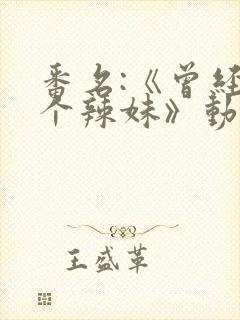 番名:《曾经
个辣妹》動
王盛革